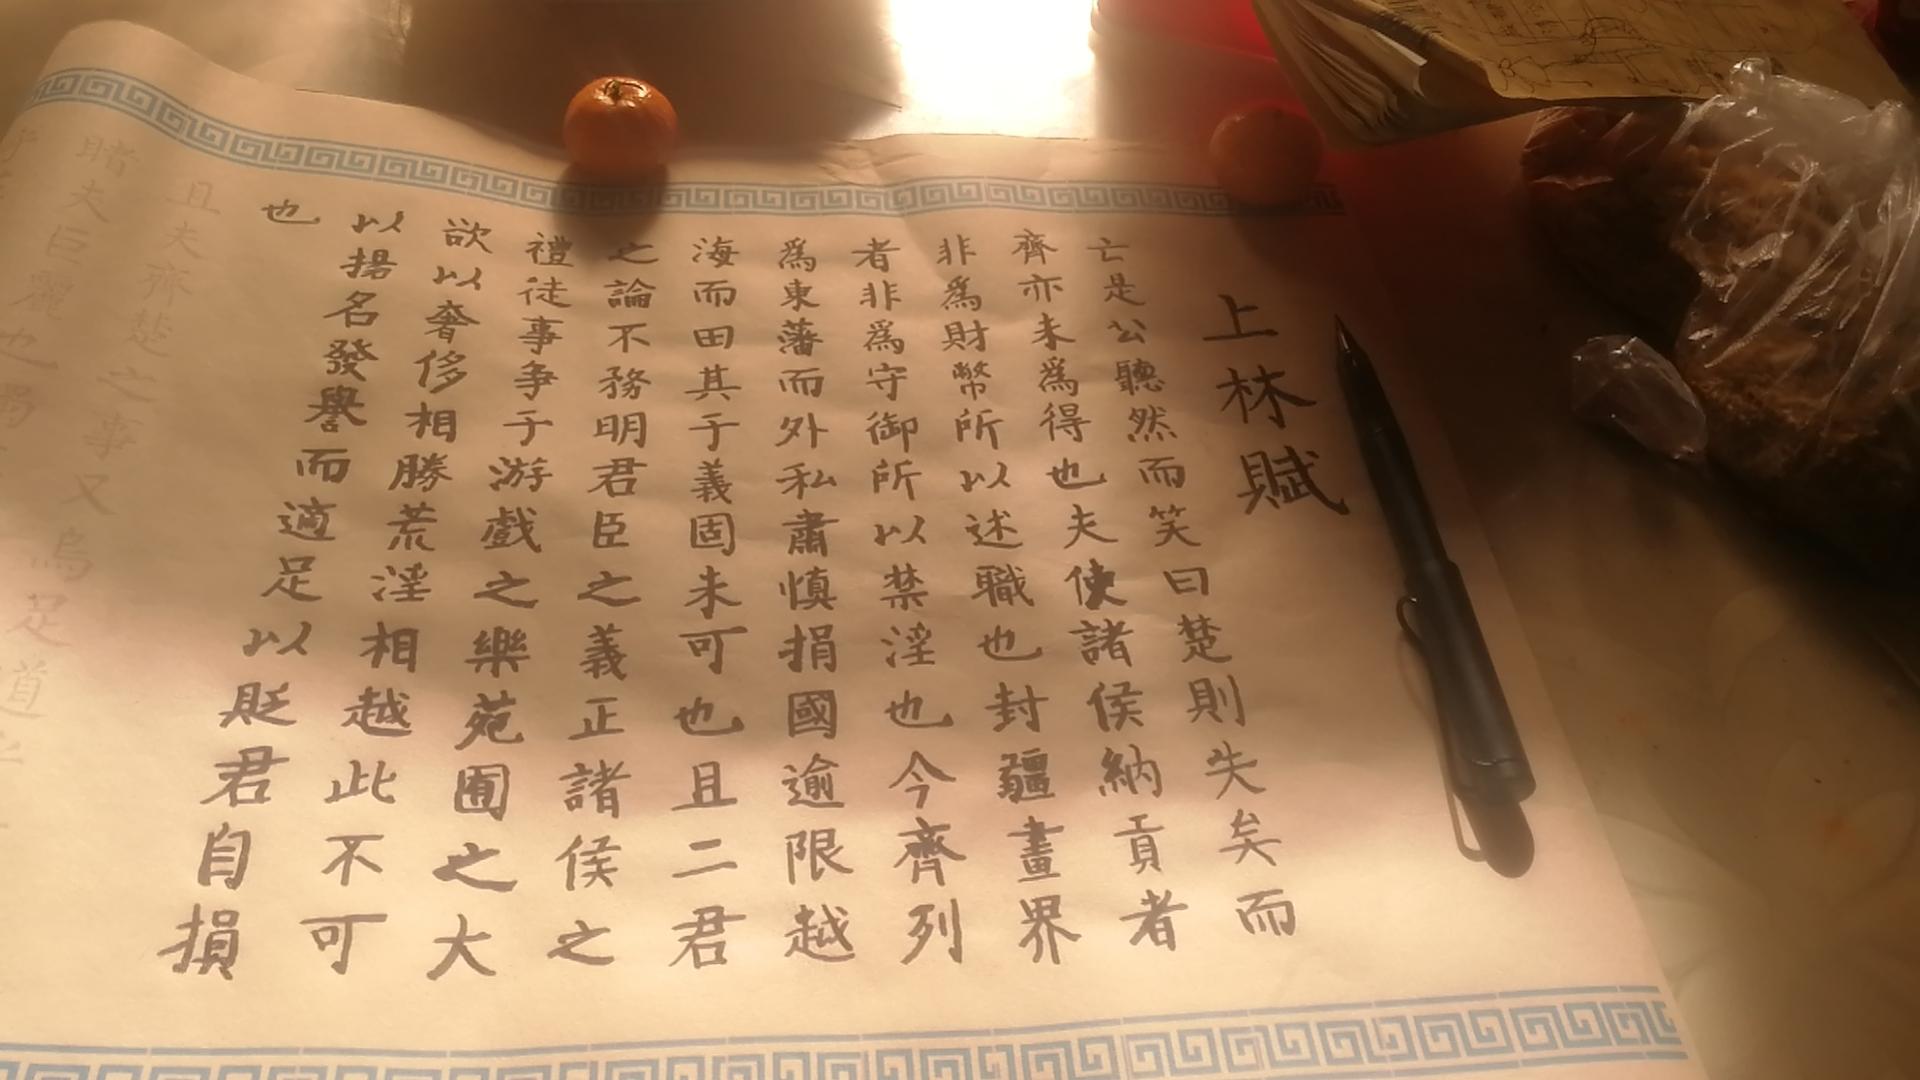 上林賦
亡是公聽然而笑曰楚則失矣而
齊亦未爲得也夫使諸侯納貢者
非爲財幣所以述職也封疆畫界
者非爲守御所以禁淫也今齊列
爲東藩而外私肅慎捐國逾限越
海而田其于義固未可也且二君
之論不務明君臣之義正諸侯之
禮徒事爭于游戲之樂苑囿之大
欲以奢侈相勝荒淫相越此不可
以揚名發譽而適足以貶君自損
也
且夫齊楚之事又烏足道
睹夫巨麗也